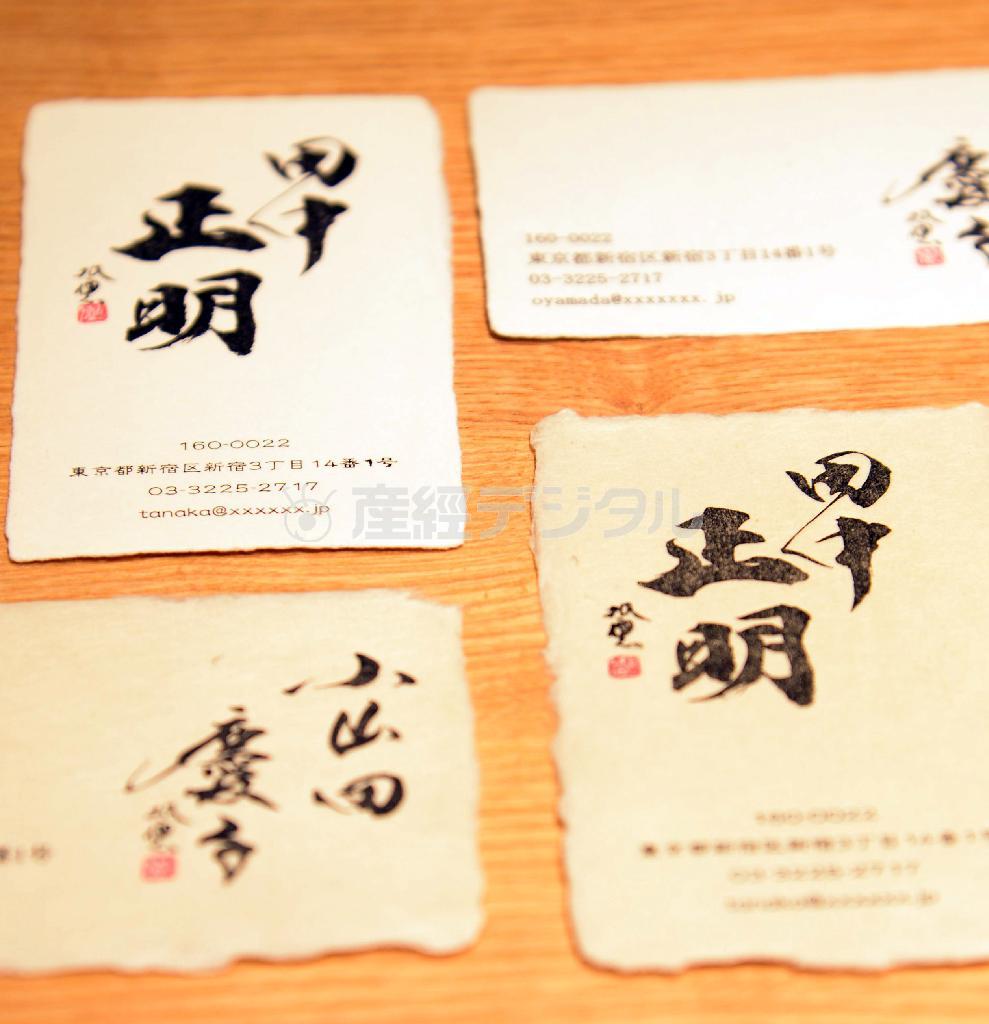 田中
正明
160-0022
東京都新宿区新宿3丁目14番1号
03-3225-2717
tanaka@xxxxxx.jp
160-0022
東京都新宿区新宿3丁目14番1号
03-3225-2717
oyamada@xxxxxxx.jp
慶
産經デジタル
小山田
慶
番1号
田中
正明
160-0022
東京都新宿区新宿3丁目14番1
03-3225-2717
tanaka@xxxxxx.jp